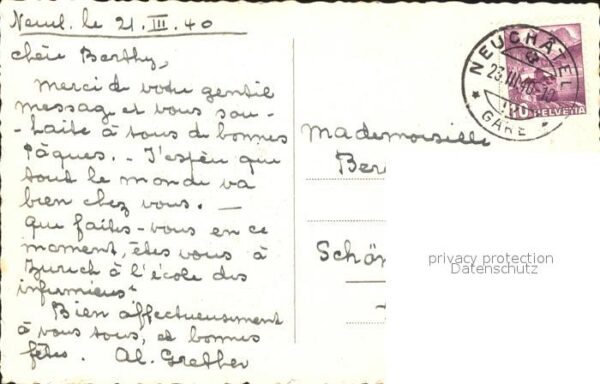 Neuch. le 21.III.40
chère Berthy,
Merci de votre gentil
message et vous sou-
-haite à tous de bonnes
Pâques. - J'espère que
tout le monde va
bien chez vous. —
Que faites-vous en ce
moment, êtes vous à
Zurich à l'école des
infirmières
Bien affectueusement
à vous tous, et bonnes
fêtes. Al. Grether
Mademoiselle
Ber
Schön
NEUCHÂTEL
23.III.40-10
GARE
10 HELVETIA
privacy protection
Datenschutz